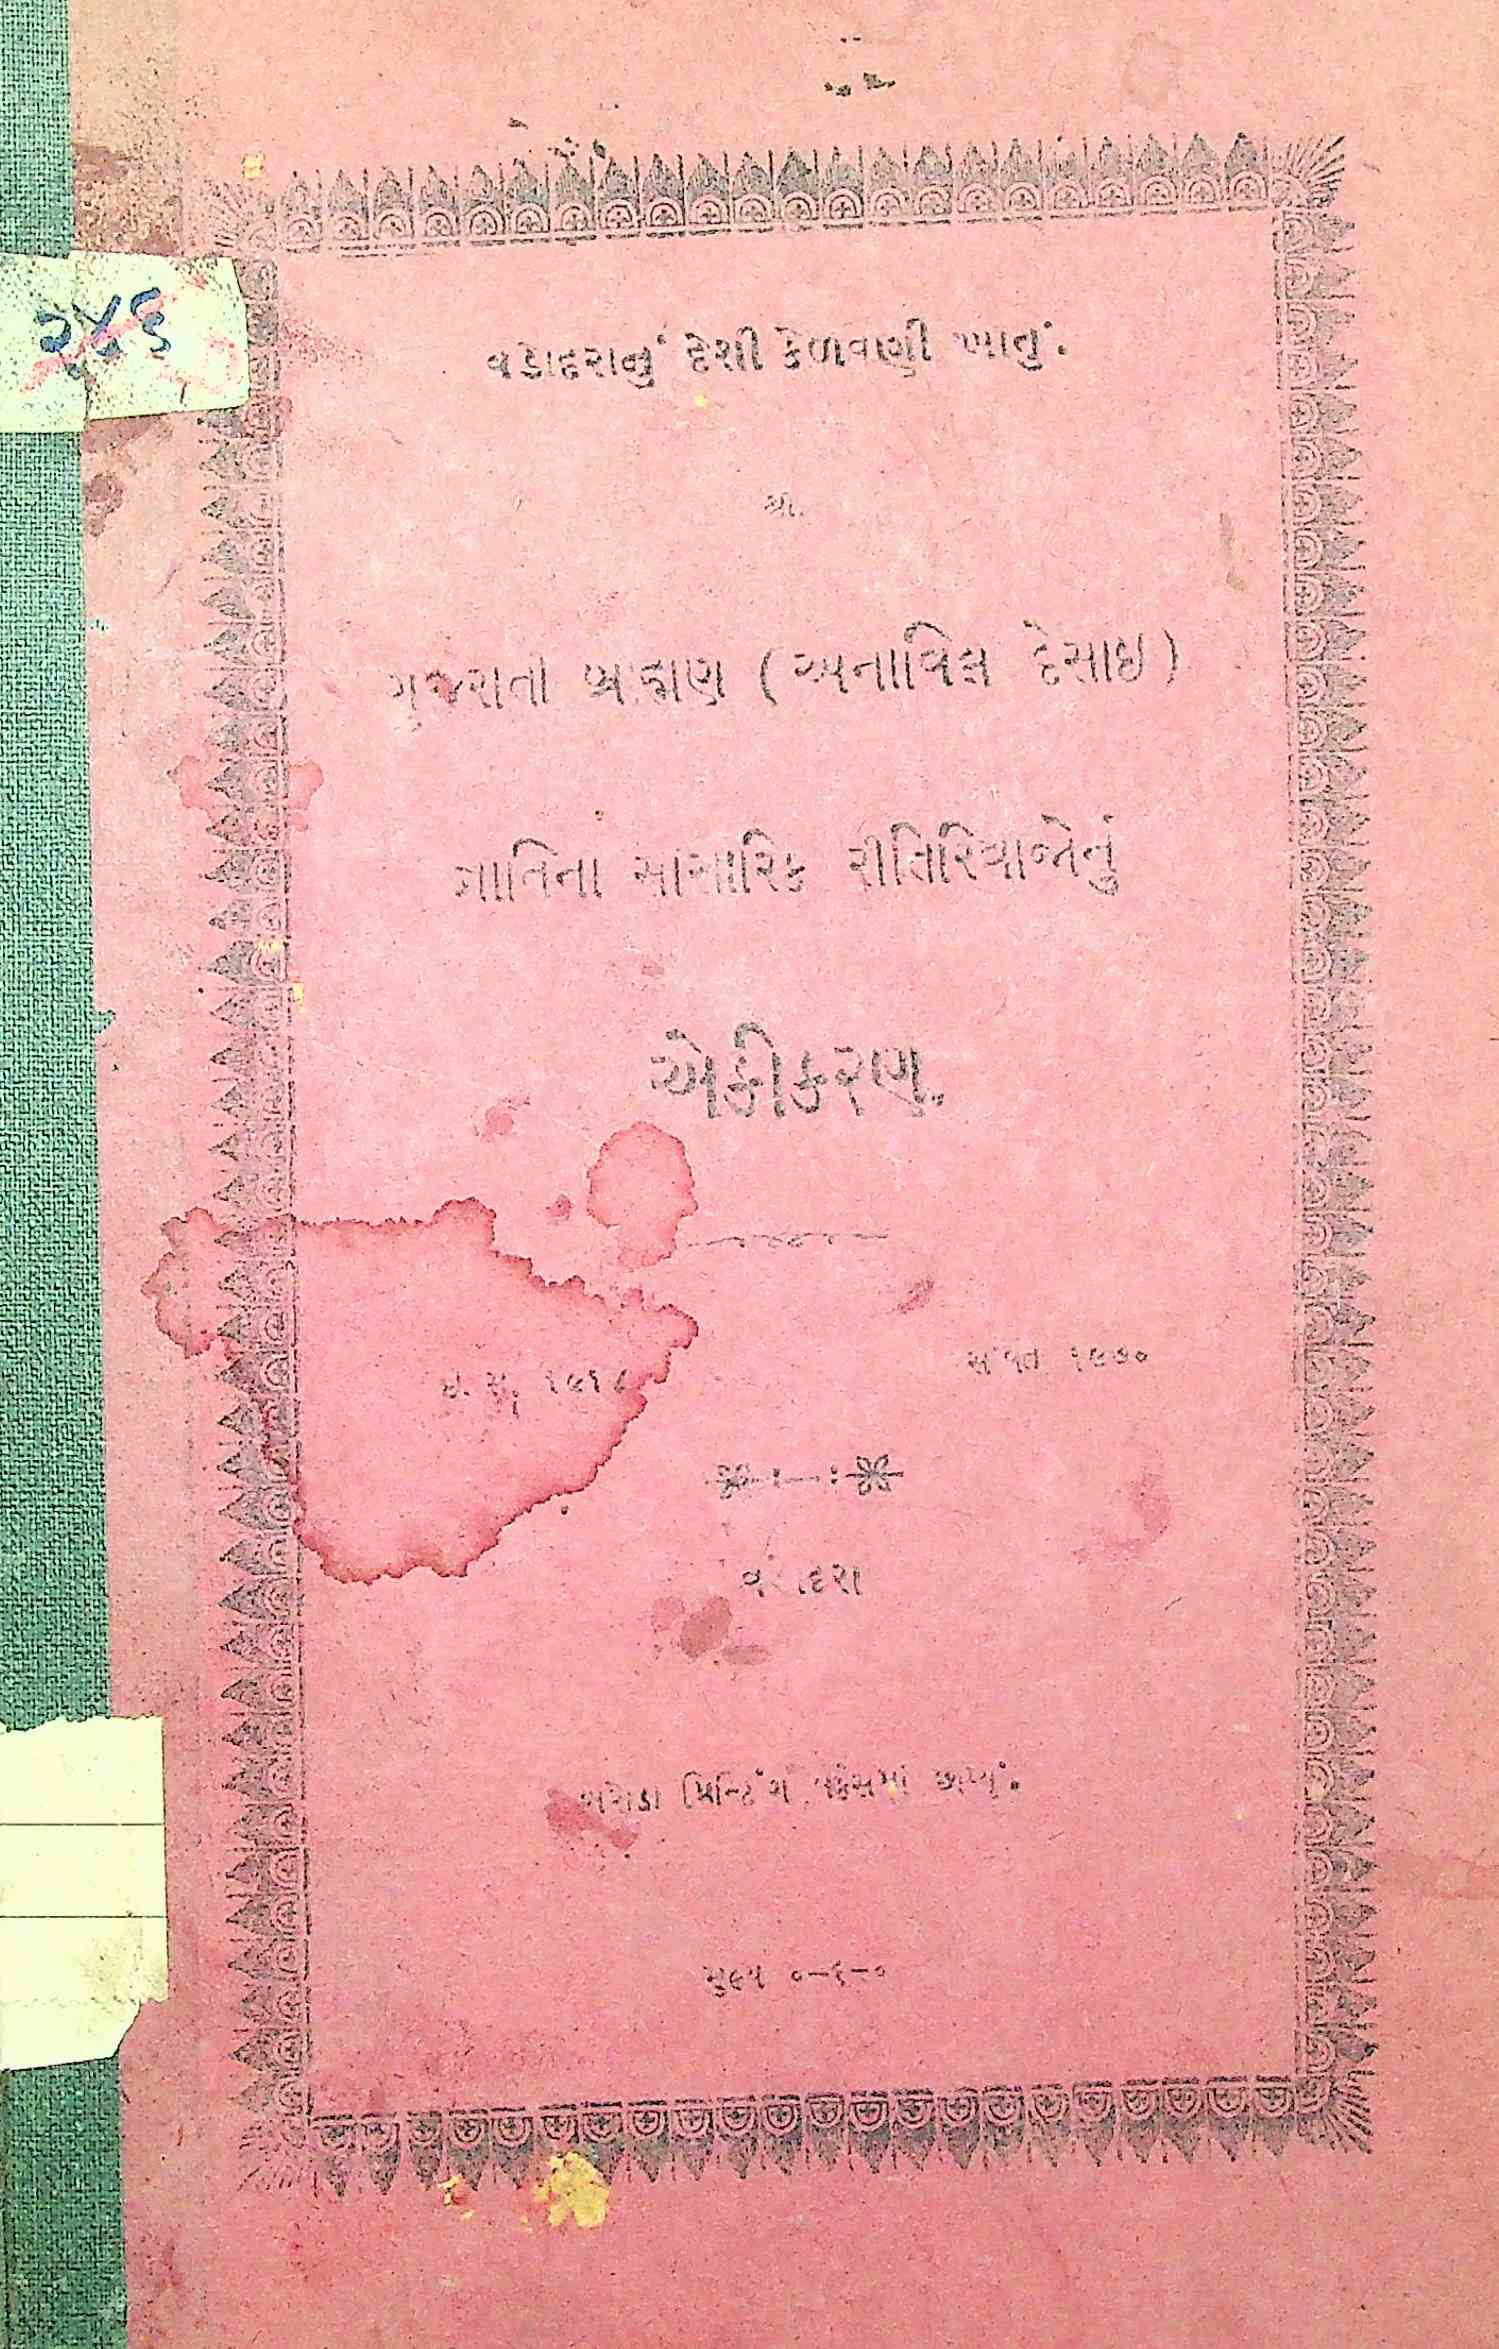 ૨૪૬
વડોદરાનું દેશી કેળવણી ખાતું.
શ્રી.
ગુજરાતી બ્રાહ્મણ ( અનાવિલ દેસાઇ )
જ્ઞાતિના સાંસારિક રીતિરિવાજોનું
એકીકરણ.
સંવત ૧૯૭૦
ઇ. સ. ૧૯૧૪
વડોદરા
બરોડા પ્રિન્ટિંગ વર્કસમાં છાપ્યું.
મુલ્ય ૦–૬–૦